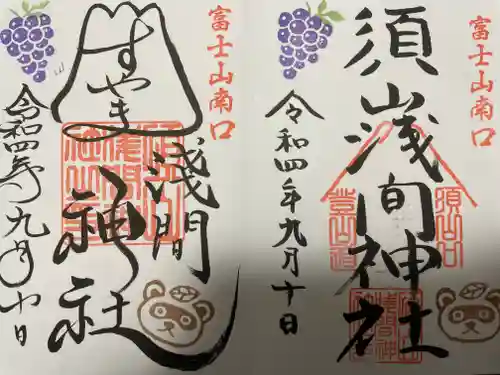 富士山南口
須山浅間神社
須山口
登山道
令和四年九月十日
富士山南口
すやま
浅間
神社
令和四年九月十日